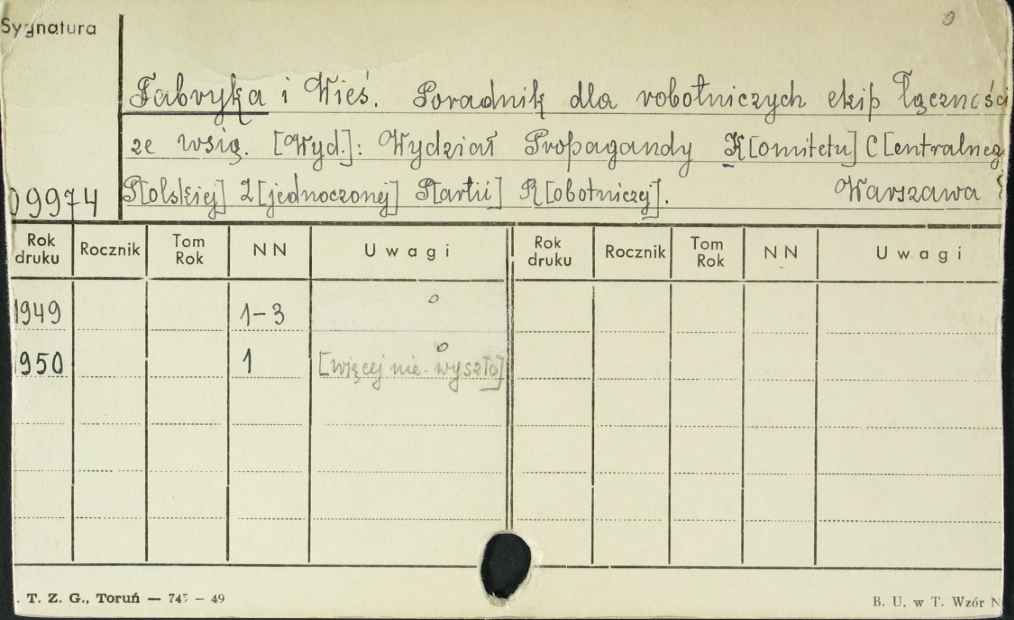 Sygnatura
Fabryka i Wieś. Poradnik dla robotniczych ekip łączności
ze wsią. [Wyd.]: Wydział Propagandy K[omitetu] C[entralneg
P[olskiej] Z[jednoczonej] P[artii] R[obotniczej]. Warszawa
09974
Rok druku Rocznik Tom Rok NN Uwagi Rok druku Rocznik Tom Rok NN Uwagi
1949 1-3
1950 1 [więcej nie wyszło]
. T. Z. G., Toruń — 745 — 49 B. U. w T. Wzór N